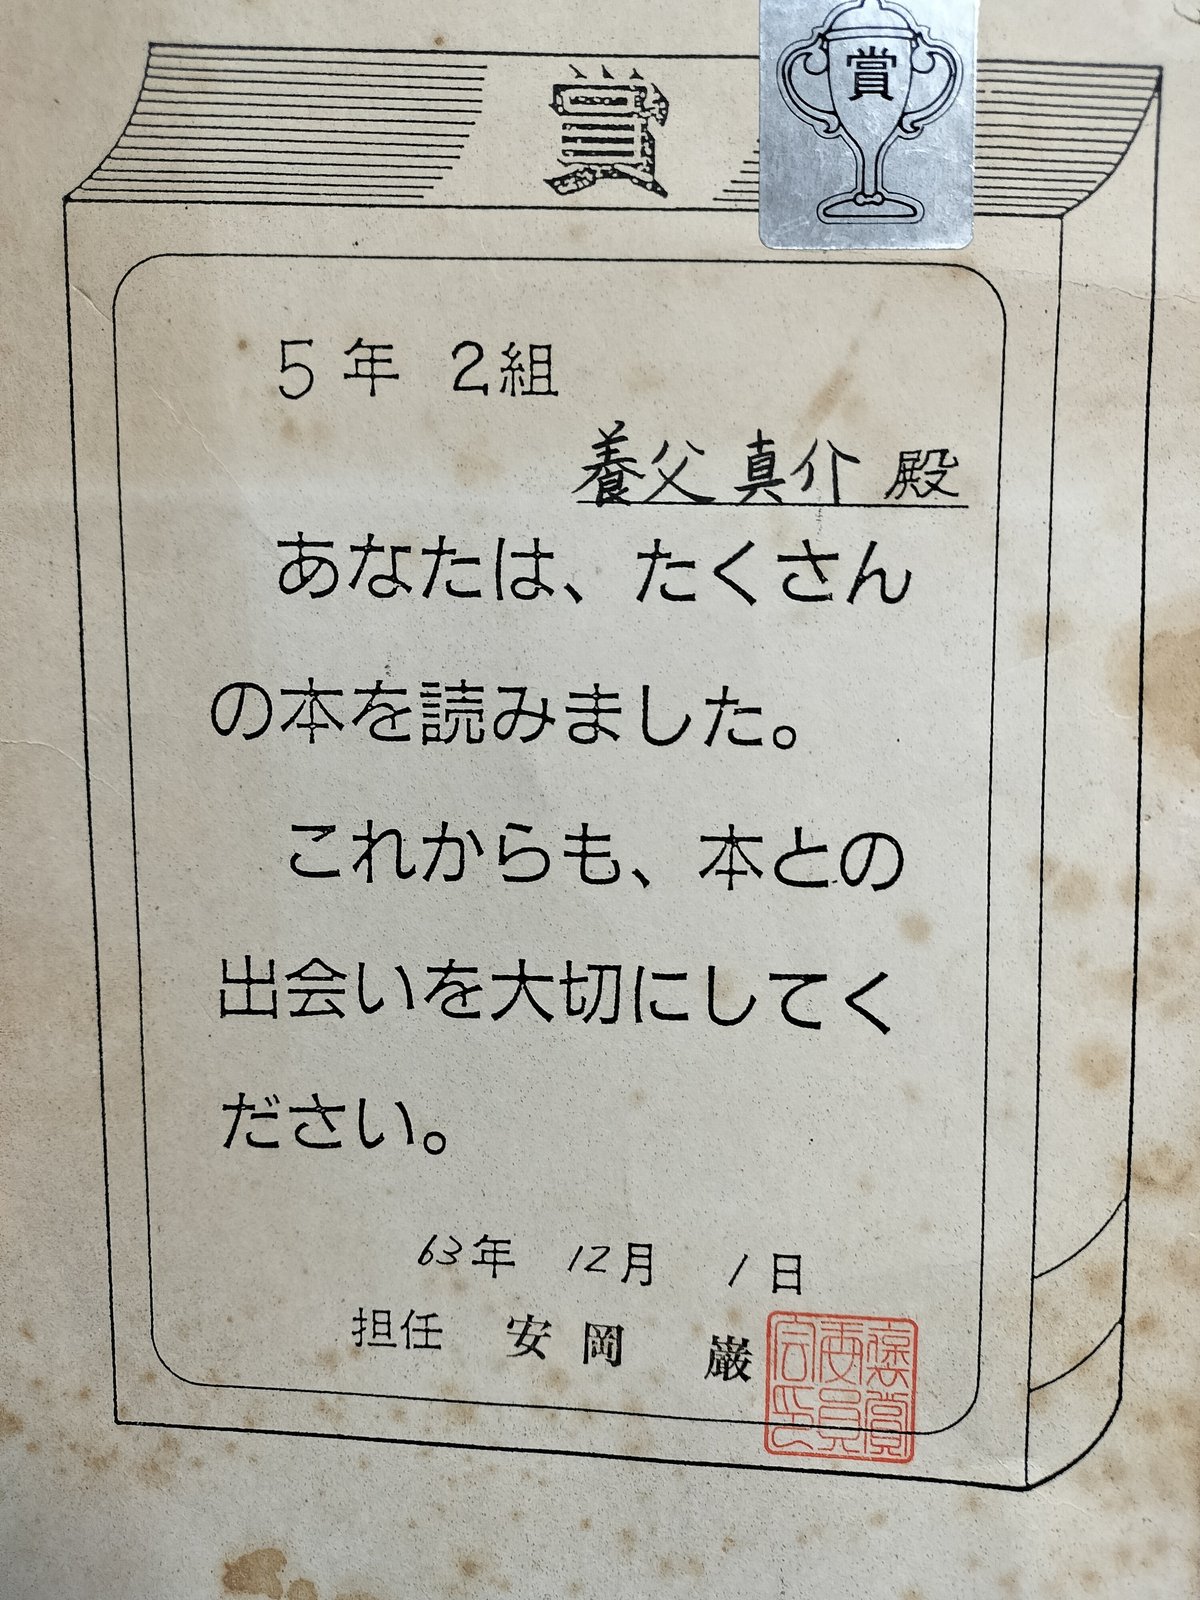 賞
賞
5年 2組
養父 真介 殿
あなたは、たくさん
の本を読みました。
これからも、本との
出会いを大切にしてく
ださい。
63年 12月 1日
担任 安岡 巌
褒賞
委員
会印